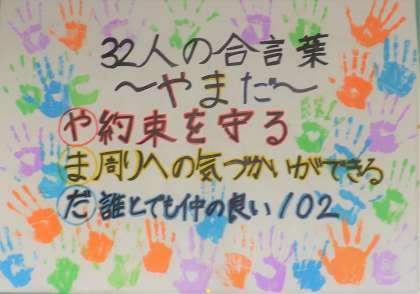 32人の合言葉
～やまだ～
や約束を守る
ま周りへの気づかいができる
だ誰とでも仲の良い102